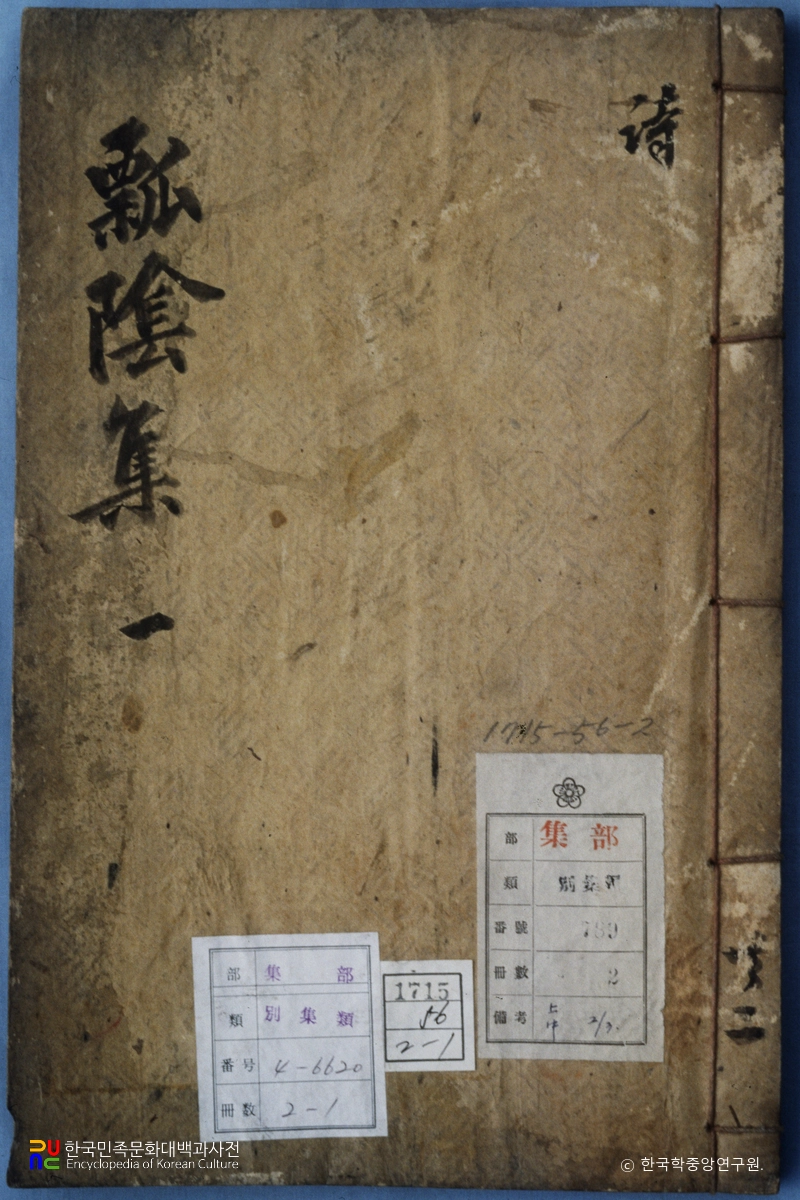 詩
瓢陰集 一
共二
1715-56-2
部 集部
類 別集類
番號 789
冊數 2
備考
部 集部
類 別集類
番号 4-6620
冊數 2-1
1715
56
2-1
한국민족문화대백과사전
Encyclopedia of Korean Culture
© 한국학중앙연구원.